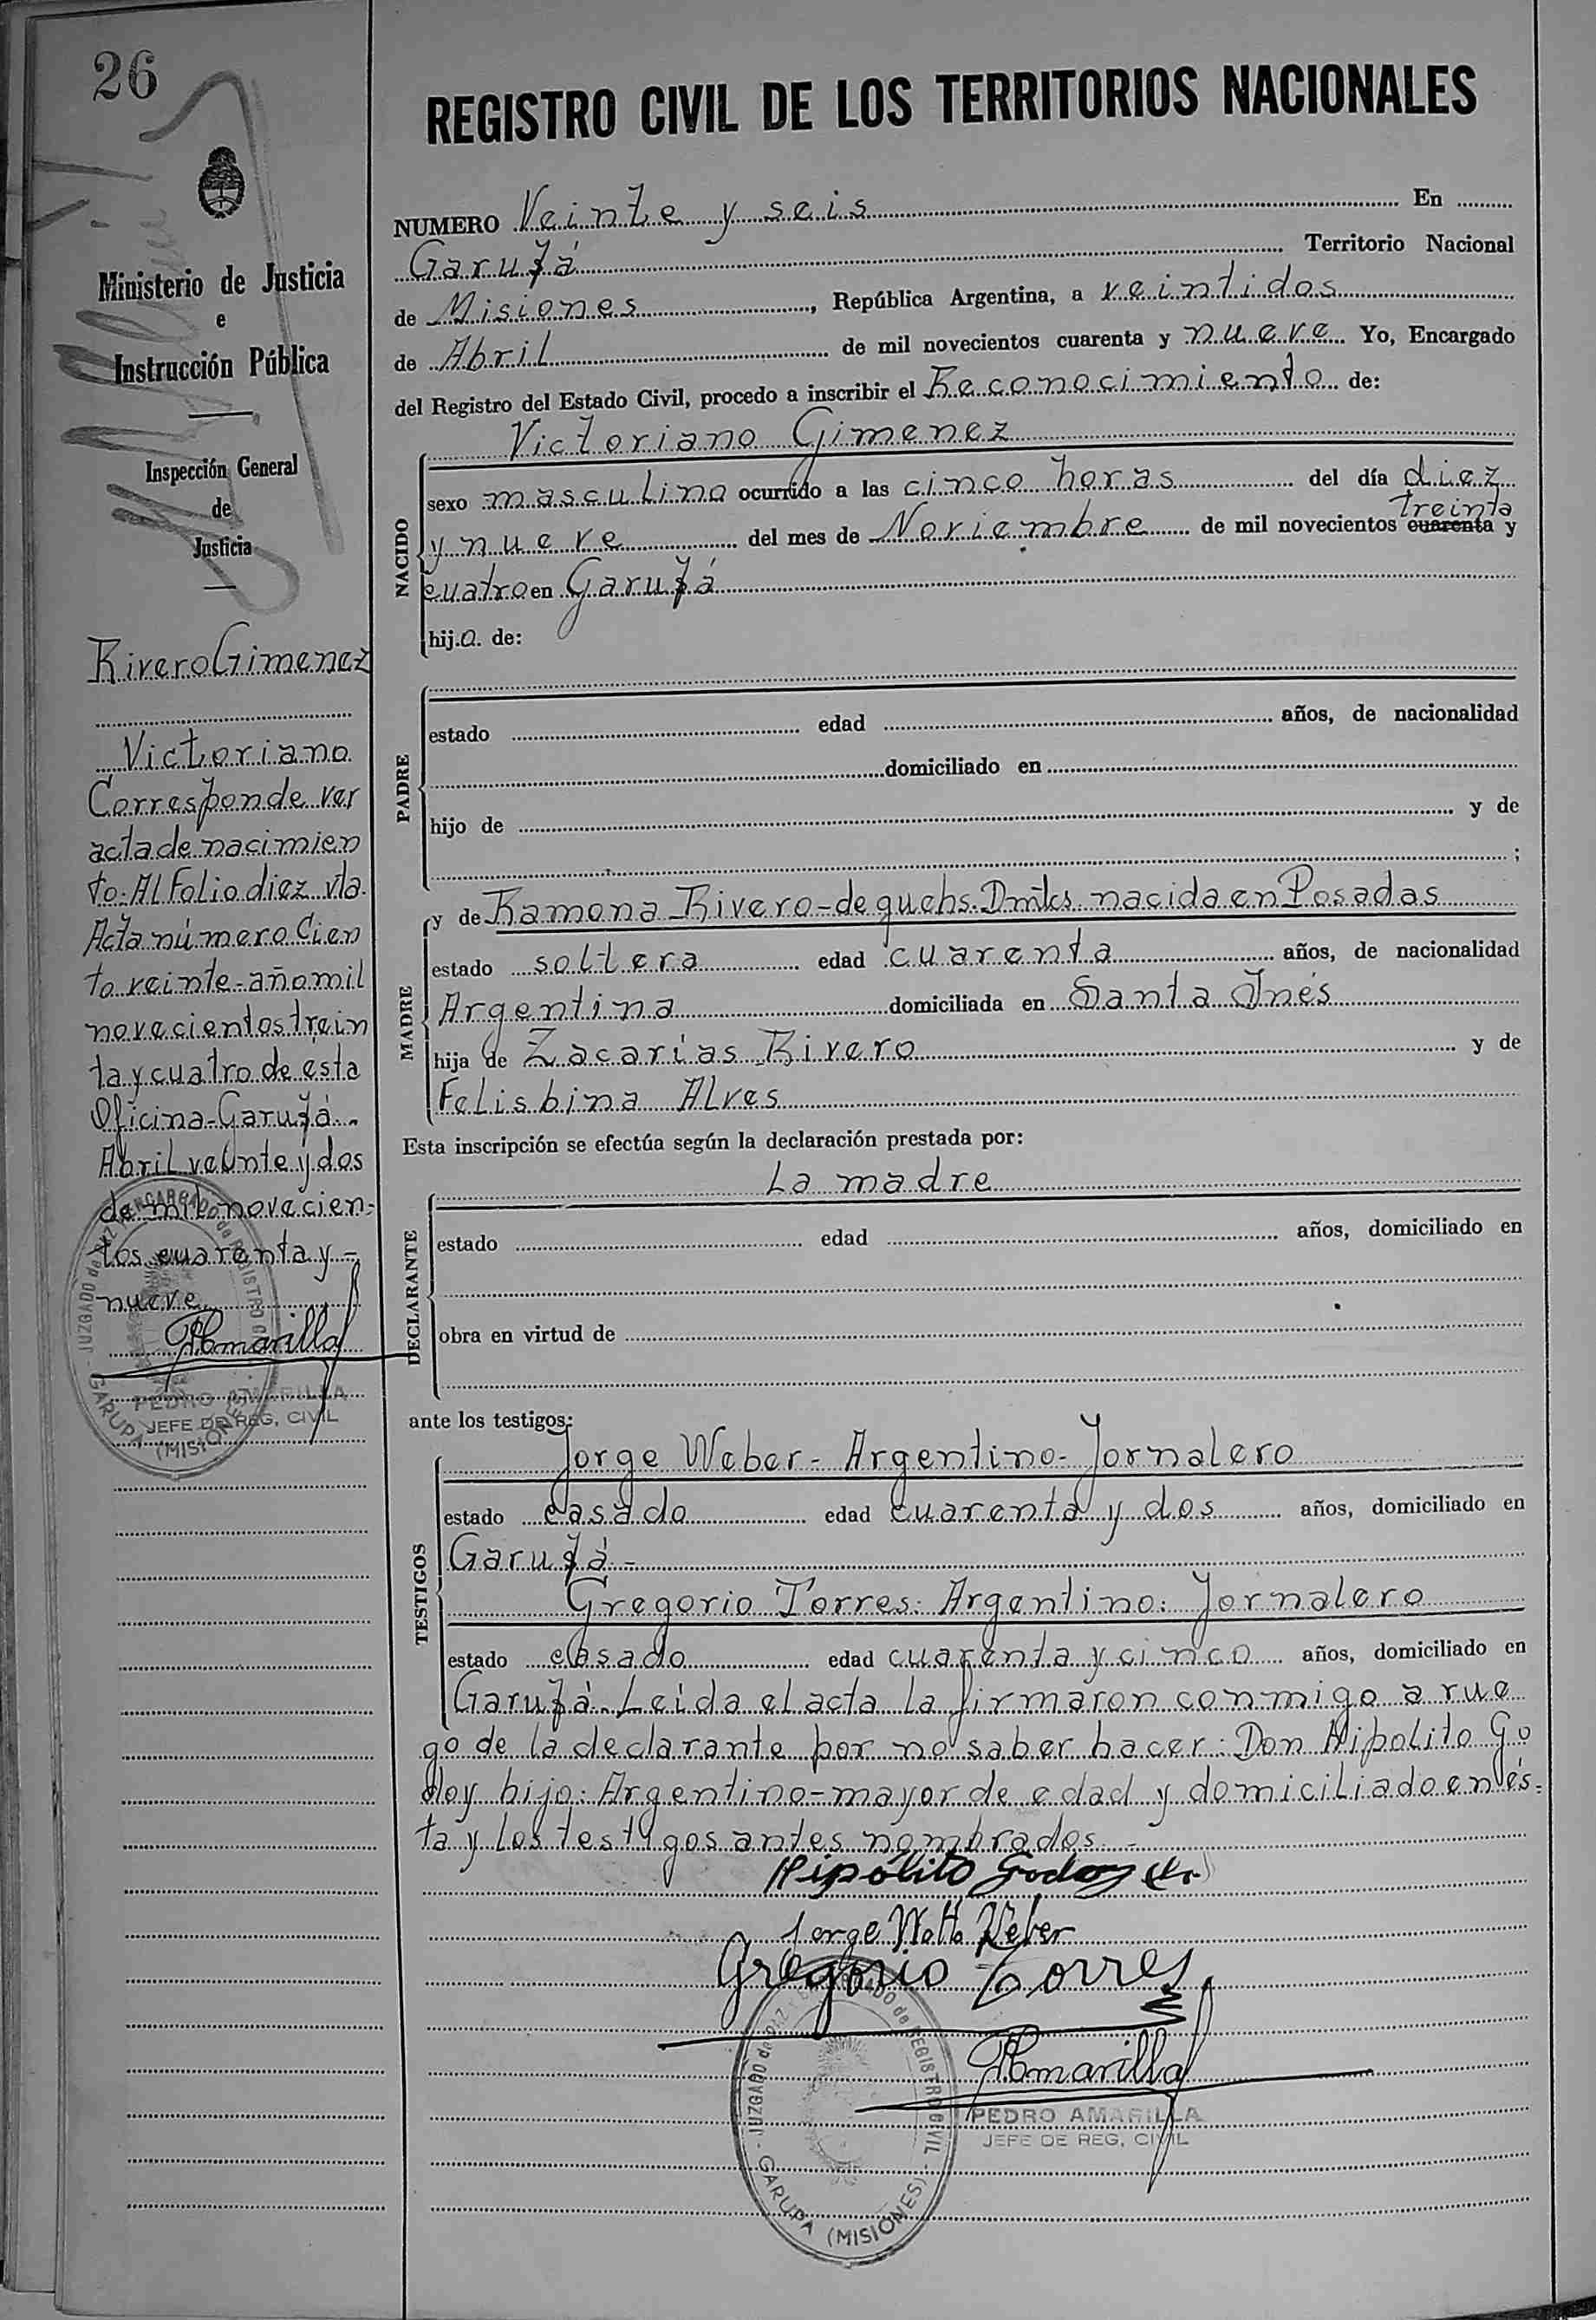 26
Ministerio de Justicia
e
Instrucción Pública
Inspección General
de
Justicia
Rivero Gimenez
Victoriano
Corresponde ver
acta de nacimien
to: Al Folio diez vta.
Acta número Cien
to veinte-año mil
novecientos trein
ta y cuatro de esta
Oficina-Garupá.
Abril veinte y dos
de mil novecien-
tos cuarenta y -
nueve
PAmarilla
PEDRO AMARILLA
JEFE DE REG, CIVIL
JUZGADO de PAZ y ENCARGADO de REGISTRO CIVIL
GARUPA (MISIONES)
REGISTRO CIVIL DE LOS TERRITORIOS NACIONALES
NUMERO Veinte y seis En
Garupá Territorio Nacional
de Misiones, República Argentina, a veintidos
de Abril de mil novecientos cuarenta y nueve Yo, Encargado
del Registro del Estado Civil, procedo a inscribir el Reconocimiento de:
Victoriano Gimenez
NACIDO
sexo masculino ocurrido a las cinco horas del día diez
treinta
y nueve del mes de Noviembre de mil novecientos cuarenta y
cuatro en Garupá
hijo de:
PADRE
estado edad años, de nacionalidad
domiciliado en
hijo de y de
;
MADRE
y de Ramona Rivero-de quehs. Dmtcs. nacida en Posadas
estado soltera edad cuarenta años, de nacionalidad
Argentina domiciliada en Santa Inés
hija de Zacarías Rivero y de
Felisbina Alves
Esta inscripción se efectúa según la declaración prestada por:
La madre
DECLARANTE
estado edad años, domiciliado en
obra en virtud de
ante los testigos:
Jorge Weber- Argentino- Jornalero
TESTIGOS
estado casado edad cuarenta y dos años, domiciliado en
Garupá -
Gregorio Torres: Argentino: Jornalero
estado casado edad cuarenta y cinco años, domiciliado en
Garupá. Leída el acta la firmaron conmigo a rue
go de la declarante por no saber hacer: Don Hipolito Go
doy hijo: Argentino-mayor de edad y domiciliado en és-
ta y los testigos antes nombrados.-
Hipólito Godoy
Jorge Weber
Gregorio Torres
PAmarilla
PEDRO AMARILLA
JEFE DE REG, CIVIL
JUZGADO de PAZ y ENCARGADO de REGISTRO CIVIL
GARUPA (MISIONES)